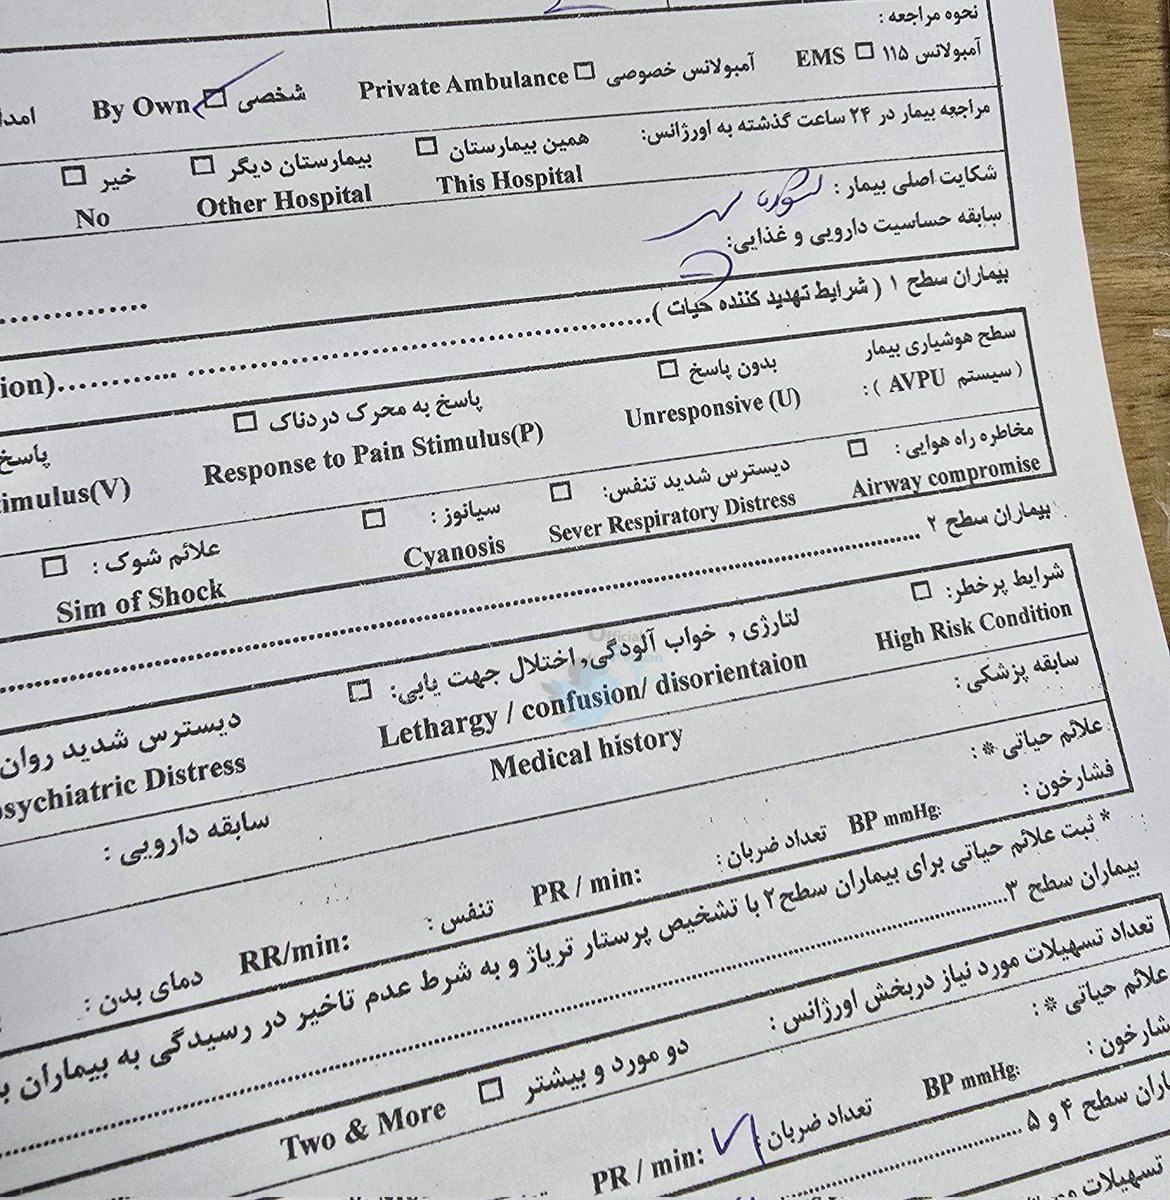 نحوه مراجعه :
آمبولانس ۱۱۵ □ EMS آمبولانس خصوصی □ Private Ambulance شخصی □ By Own
مراجعه بیمار در ۲۴ ساعت گذشته به اورژانس: همین بیمارستان □ بیمارستان دیگر □ خیر □
This Hospital Other Hospital No
شکایت اصلی بیمار :
سابقه حساسیت دارویی و غذایی:
بیماران سطح ۱ ( شرایط تهدید کننده حیات )
سطح هوشیاری بیمار بدون پاسخ □ پاسخ به محرک دردناک □ پاسخ
( سیستم AVPU ) : Unresponsive (U) Response to Pain Stimulus(P)
مخاطره راه هوایی : □ دیسترس شدید تنفس: □ سیانوز : □ علائم شوک : □
Airway compromise Sever Respiratory Distress Cyanosis Sim of Shock
بیماران سطح ۲
شرایط پرخطر: □ لتارژی , خواب آلودگی, اختلال جهت یابی: □ دیسترس شدید روان
High Risk Condition Lethargy / confusion/ disorientaion Distress
سابقه پزشکی : Medical history سابقه دارویی :
علائم حیاتی * :
فشارخون : BP mmHg: تعداد ضربان : PR / min: تنفس : RR/min: دمای بدن :
* ثبت علائم حیاتی برای بیماران سطح۲ با تشخیص پرستار تریاژ و به شرط عدم تاخیر در رسیدگی به بیماران
بیماران سطح ۳
تعداد تسهیلات مورد نیاز دربخش اورژانس : دو مورد و بیشتر □ Two & More
علائم حیاتی * :
BP mmHg: تعداد ضربان : PR / min:
سطح ۴ و ۵
تسهیلات